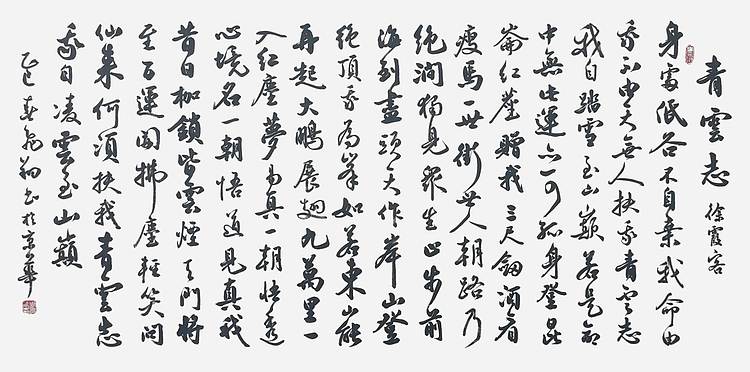 青雲志 徐霞客
身處低谷不自棄我命由
我不由天無人扶我青雲志
我自踏雪至山巔若是命
中無此運亦可孤身登昆
崙紅塵贈我三尺劍酒肴
瘦馬一世銜世人朝路乃
絕澗獨見眾生止步前
海到盡頭天作岸山登
絕頂我為峯如若東山能
再起大鵬展翅九萬里一
入紅塵夢易真一朝悟透
心境名一朝悟道見真我
昔日枷鎖皆雲煙天門將
至百運開拂塵輕笑問
仙來何須扶我青雲志
我自凌雲至山巔
乙巳春書於京華